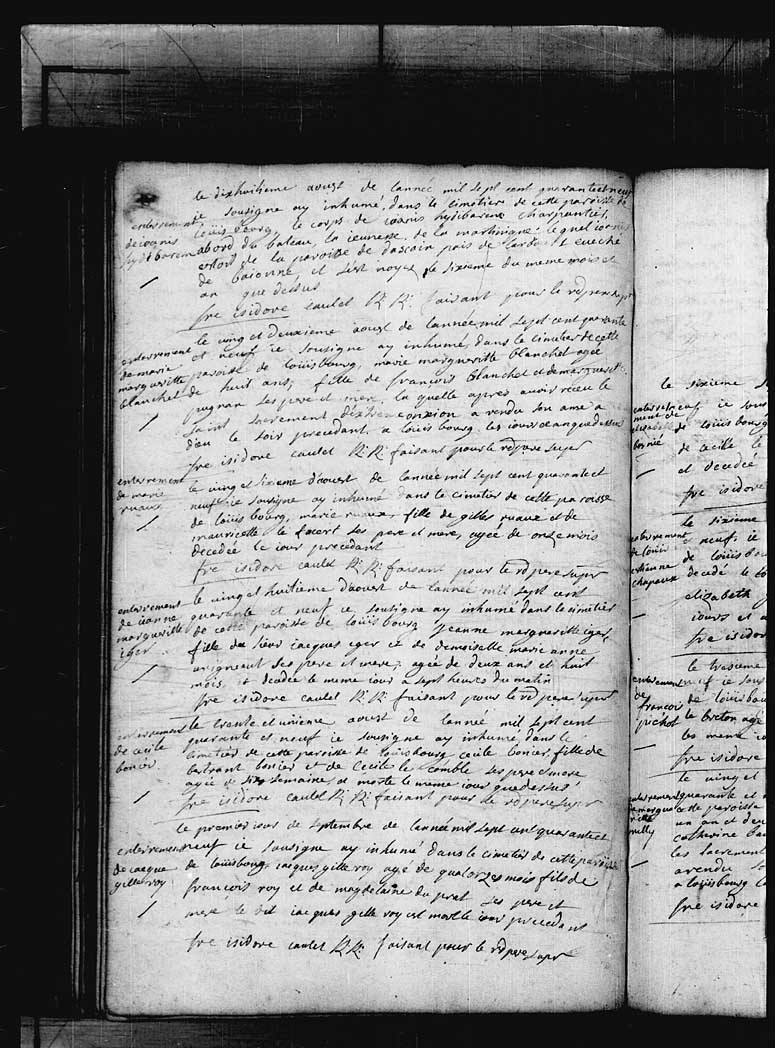 le dixhuitieme aoust de lannée mil sept cent quarantet neuf
ie sousigne ay inhumé dans le cimetier de cette paroisse de
loüisbourg, le corps de ioanis hysibarem charpantié,
abord du bateau, la ieunesse de la martinique le quel ioanis
estoit de la paroisse de dascain pais de eveché
de baionne, et s'est noyez le sixieme du meme mois et
an que dessus
fre isidore caulet R: R: faisant pour le rd pere supr
enterrement
de ioanis
hysibarem
le vingt deuxieme aoust de lannée mil sept cent quarante
et neuf ie sousigne ay inhumé, dans le cimetier de cette
paroisse de louisbourg, marie margueritte blanchet agée
de huit ans, fille de françois blanchet et de margueritte
pugnan ses pere et mere, la quelle apres auoir recu le
saint sacrement dextreme onxion a rendu son ame a
dieu le soir precedant, a louisbourg les iours et an que dessus
fre isidore caulet R: R: faisant pour le rd pere super
enterrement
de marie
margueritte
blanchet
le vingt sixieme d'aoust de lannée mil sept cent quarante et
neuf ie sousigne ay inhumé dans le cimetier de cette paroisse
de loüisbourg, marie ruaux, fille de gilles ruaux et de
mauricette le ses pere et mere, agée de onze mois
decedée le iour precedant
fre isidore caulet R: R: faisant pour le rd pere super
enterrement
de marie
ruaux
le vingt huitieme d'aoust de lannée mil sept cent
quarante et neuf ie sousigne ay inhumé dans le cimetier
de cette paroisse de loüisbourg Jeanne margueritte iger
fille du sieur iacques eger et de demoiselle marie anne
ses pere et mere; agée de deux ans et huit
mois, et decedée le meme iour a sept heures du matin
fre isidore caulet R: R: faisant pour le rd pere super
enterrement
de ieanne
margueritte
iger
le trante et unieme aoust de lannée mil sept cent
quarante et neuf ie sousigne ay inhumé dans le
cimetier de cette paroisse de louisbourg cecile bonier, fille de
bertrant bonier et de cecile le comble ses pere et mere
agée de six semaines et morte le meme iour que dessus
fre isidore caulet R: R: faisant pour le rd pere super
enterrement
de cecile
bonier
le premier iour de septembre de lannée mil sept cent quarante et
neuf ie sousigne ay inhumé dans le cimetier de cette paroisse
de loüisbourg iacques gille roy agé de quatorze mois fils de
françois roy et de magdelaine du prat ses pere et
mere le dit iacques gille roy est mort le iour precedant
fre isidore caulet R: R: faisant pour le rd pere super
enterrement
de iacque
gille roy
le sixieme
neuf ie sous
de loüisbourg
de cecille le
et decedée
fre isidore
le sixieme
neuf, ie
de louisbou
decedé le
elizabeth
iours et a
fre isidor
enterrement
de louis
estienne
chapaux
le
neuf ie sous
de loüisbou
le breton agé
les meme io
fre isidore
enterrement
de
françois
pichot
le vingt et
quarante et
cette paroisse
un an et deu
catherine
les sacrement
a rendu so
a loüisbourg
fre isidore